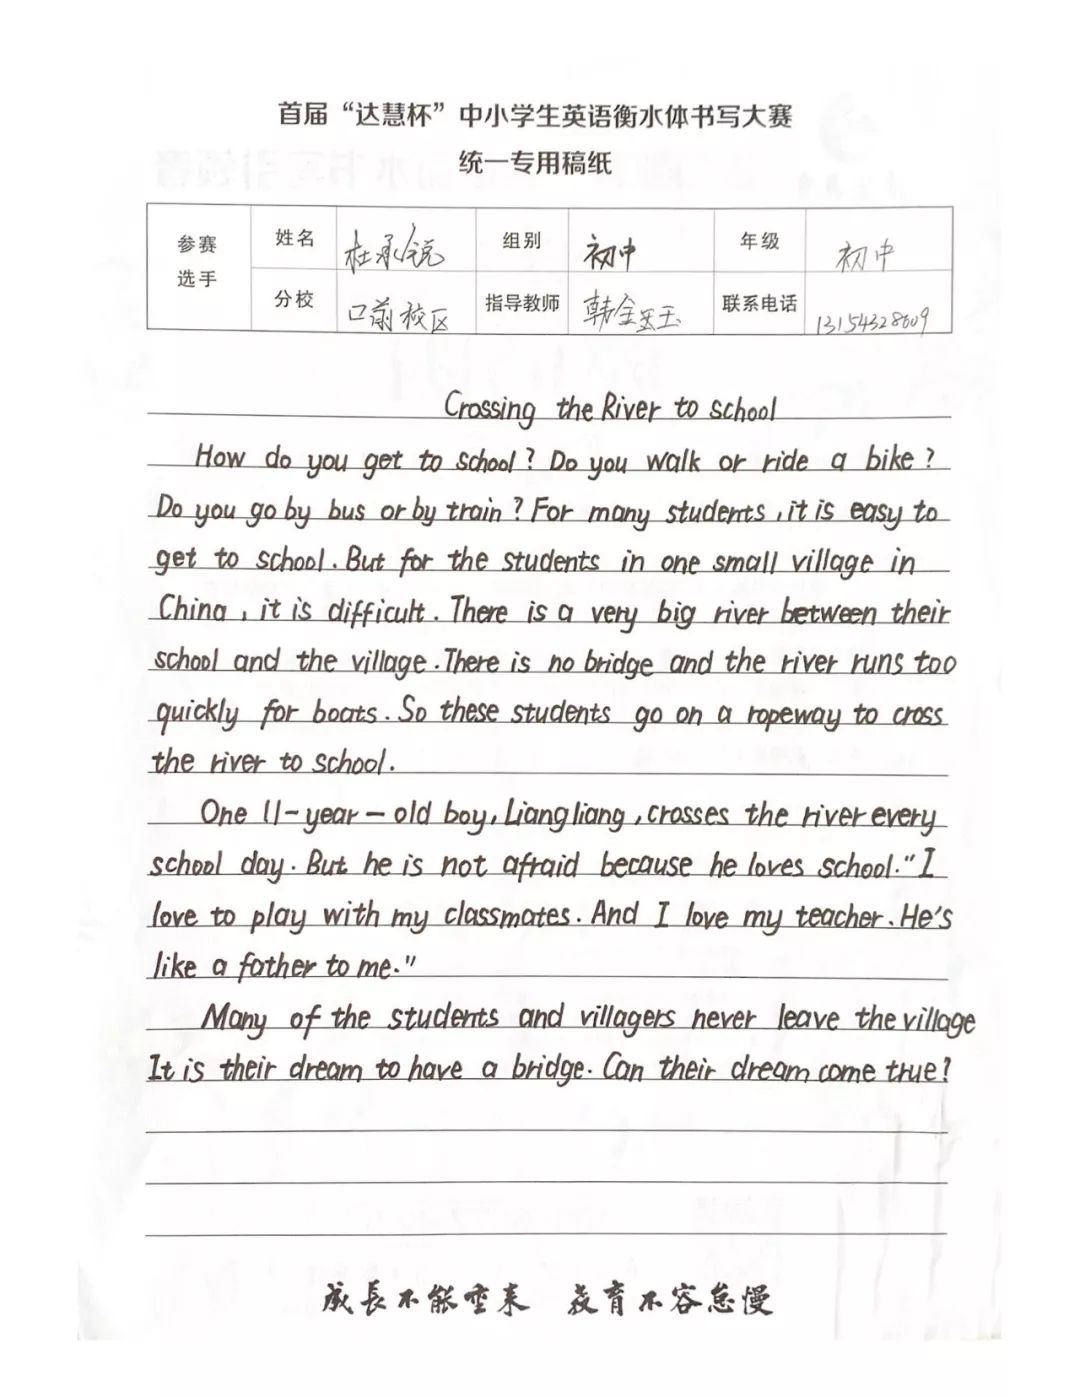 首届“达慧杯”中小学生英语衡水体书写大赛
统一专用稿纸
参赛选手 姓名 杜承锐 组别 初中 年级 初中
分校 口前校区 指导教师 韩金玉 联系电话 13154328609
Crossing the River to school
How do you get to school? Do you walk or ride a bike?
Do you go by bus or by train? For many students, it is easy to
get to school. But for the students in one small village in
China, it is difficult. There is a very big river between their
school and the village. There is no bridge and the river runs too
quickly for boats. So these students go on a ropeway to cross
the river to school.
One 11-year-old boy, Liangliang, crosses the river every
school day. But he is not afraid because he loves school. "I
love to play with my classmates. And I love my teacher. He's
like a father to me."
Many of the students and villagers never leave the village
It is their dream to have a bridge. Can their dream come true?
成長不能重来 教育不容怠慢